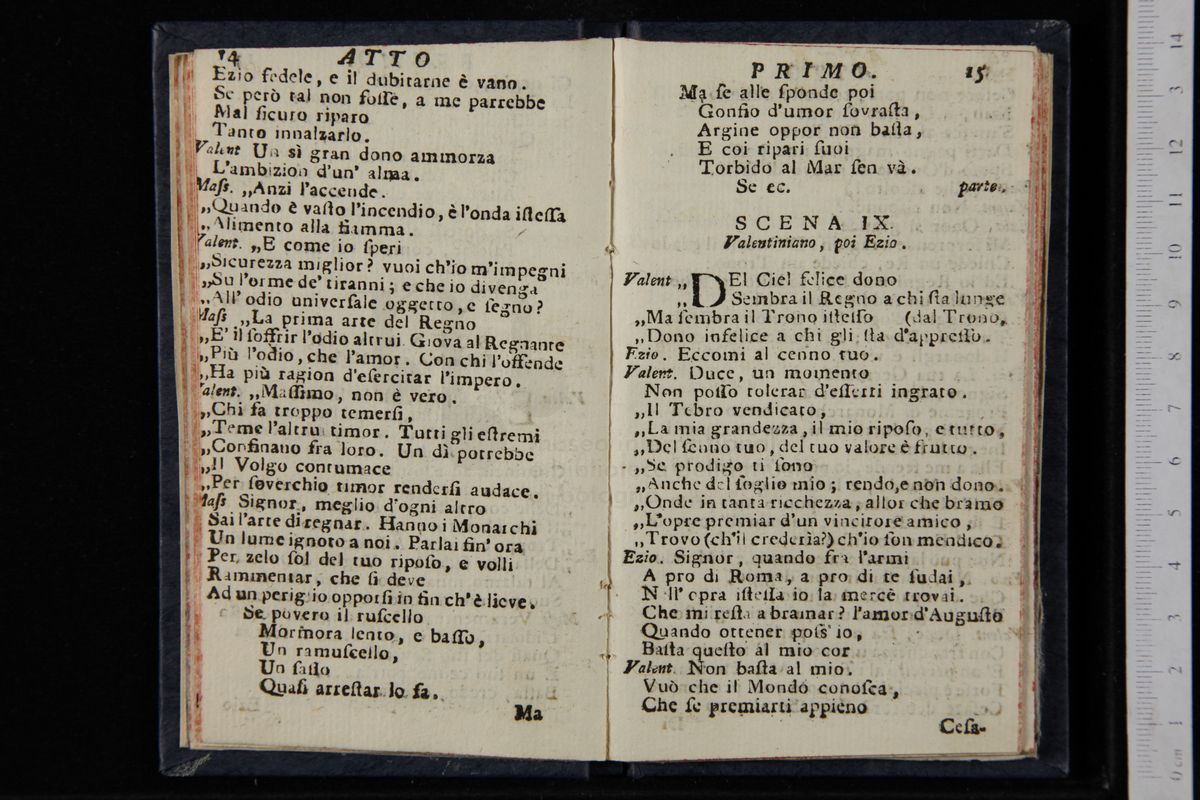 14 ATTO
Ezio fedele, e il dubitarne è vano.
Se però tal non foſſe, a me parrebbe
Mal ſicuro riparo
Tanto innalzarlo.
Valent Un sì gran dono ammorza
L'ambizion d'un' alma.
Maſſ. „Anzi l'accende.
„Quando è vaſto l'incendio, è l'onda iſteſſa
„Alimento alla fiamma.
Valent. „E come io ſperi
„Sicurezza miglior? vuoi ch'io m'impegni
„Su l'orme de' tiranni; e che io divenga
„All' odio univerſale oggetto, e ſegno?
Maſſ „La prima arte del Regno
„E' il ſoffrir l'odio altrui. Giova al Regnante
„Più l'odio, che l'amor. Con chi l'offende
„Ha più ragion d'eſercitar l'impero.
Valent. „Maſſimo, non è vero.
„Chi fa troppo temerſi,
„Teme l'altrui timor. Tutti gli eſtremi
„Confinano fra loro. Un dì potrebbe
„Il Volgo contumace
„Per ſoverchio timor renderſi audace.
Maſſ Signor, meglio d'ogni altro
Sai l'arte di regnar. Hanno i Monarchi
Un lume ignoto a noi. Parlai fin' ora
Per zelo ſol del tuo ripoſo, e volli
Rammentar, che ſi deve
Ad un periglio opporſi in fin ch'è lieve.
Se povero il ruſcello
Mormora lento, e baſſo,
Un ramuſcello,
Un ſaſſo
Quaſi arreſtar lo fa.
Ma
PRIMO. 15
Ma ſe alle ſponde poi
Gonfio d'umor ſovraſta,
Argine oppor non baſta,
E coi ripari ſuoi
Torbido al Mar ſen và.
Se ec. parte.
SCENA IX.
Valentiniano, poi Ezio.
Valent „DEl Ciel felice dono
„Sembra il Regno a chi ſta lunge
„Ma ſembra il Trono iſteſſo (dal Trono,
„Dono infelice a chi gli ſta d'appreſſo.
Ezio. Eccomi al cenno tuo.
Valent. Duce, un momento
Non poſſo tolerar d'eſſerti ingrato.
„Il Tebro vendicato,
„La mia grandezza, il mio ripoſo, e tutto,
„Del ſenno tuo, del tuo valore è frutto.
„Se prodigo ti ſono
„Anche del ſoglio mio; rendo, e non dono.
„Onde in tanta ricchezza, allor che bramo
„L'opre premiar d'un vincitore amico,
„Trovo (ch'il crederìa?) ch'io ſon mendico.
Ezio. Signor, quando fra l'armi
A pro di Roma, a pro di te ſudai,
N ll' opra iſteſſa io la mercè trovai.
Che mi reſta a bramar? l'amor d'Auguſto
Quando ottener poſs' io,
Baſta queſto al mio cor
Valent. Non baſta al mio.
Vuò che il Mondo conoſca,
Che ſe premiarti appieno
Ceſa-
14
13
12
11
10
9
8
7
6
5
4
3
2
1
0 cm